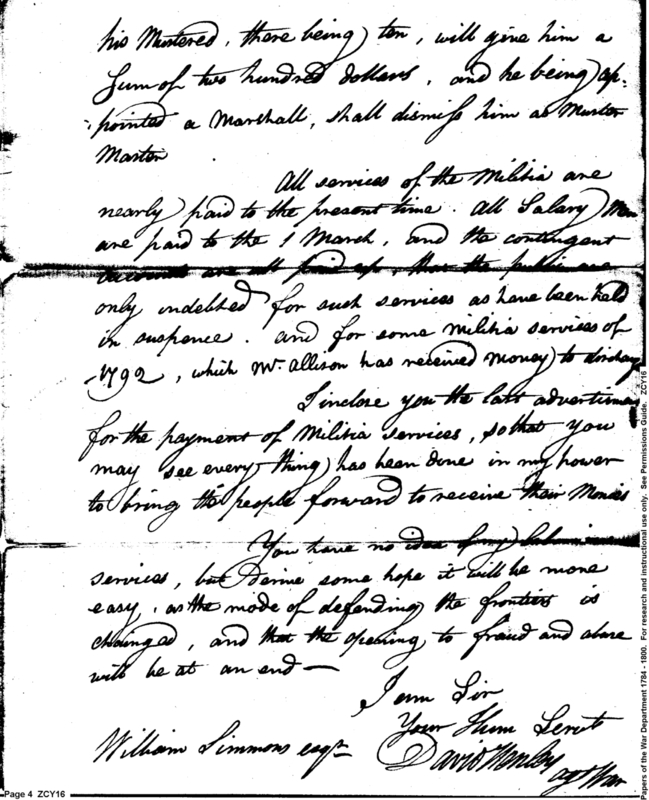 his Mustered, there being ten, will give him a
Sum of two hundred dollars, and he being ap-
pointed a Marshall, shall dismiss him as Muster
Master
All services of the Militia are
nearly paid to the present time. All Salary Men
are paid to the 1 March, and the contingent
accounts are all paid up, that the public are
only indebted for such services as have been held
in suspence. and for some militia services of
1792, which Mr. Allison has received money to discharge
I inclose you the last advertisment
for the payment of Militia services, so that you
may see every thing has been done in my power
to bring the people forward to receive their Monies
You have no idea of my
services, but I derive some hope it will be more
easy, as the mode of defending the frontiers is
chainged, and that the opening to fraud and abuse
will be at an end —
I am Sir
Your Hum Servt
David Henley
William Simmons esqr
agt War
Page 4 ZCY16
Papers of the War Department 1784 - 1800. For research and instructional use only. See Permissions Guide. ZCY16